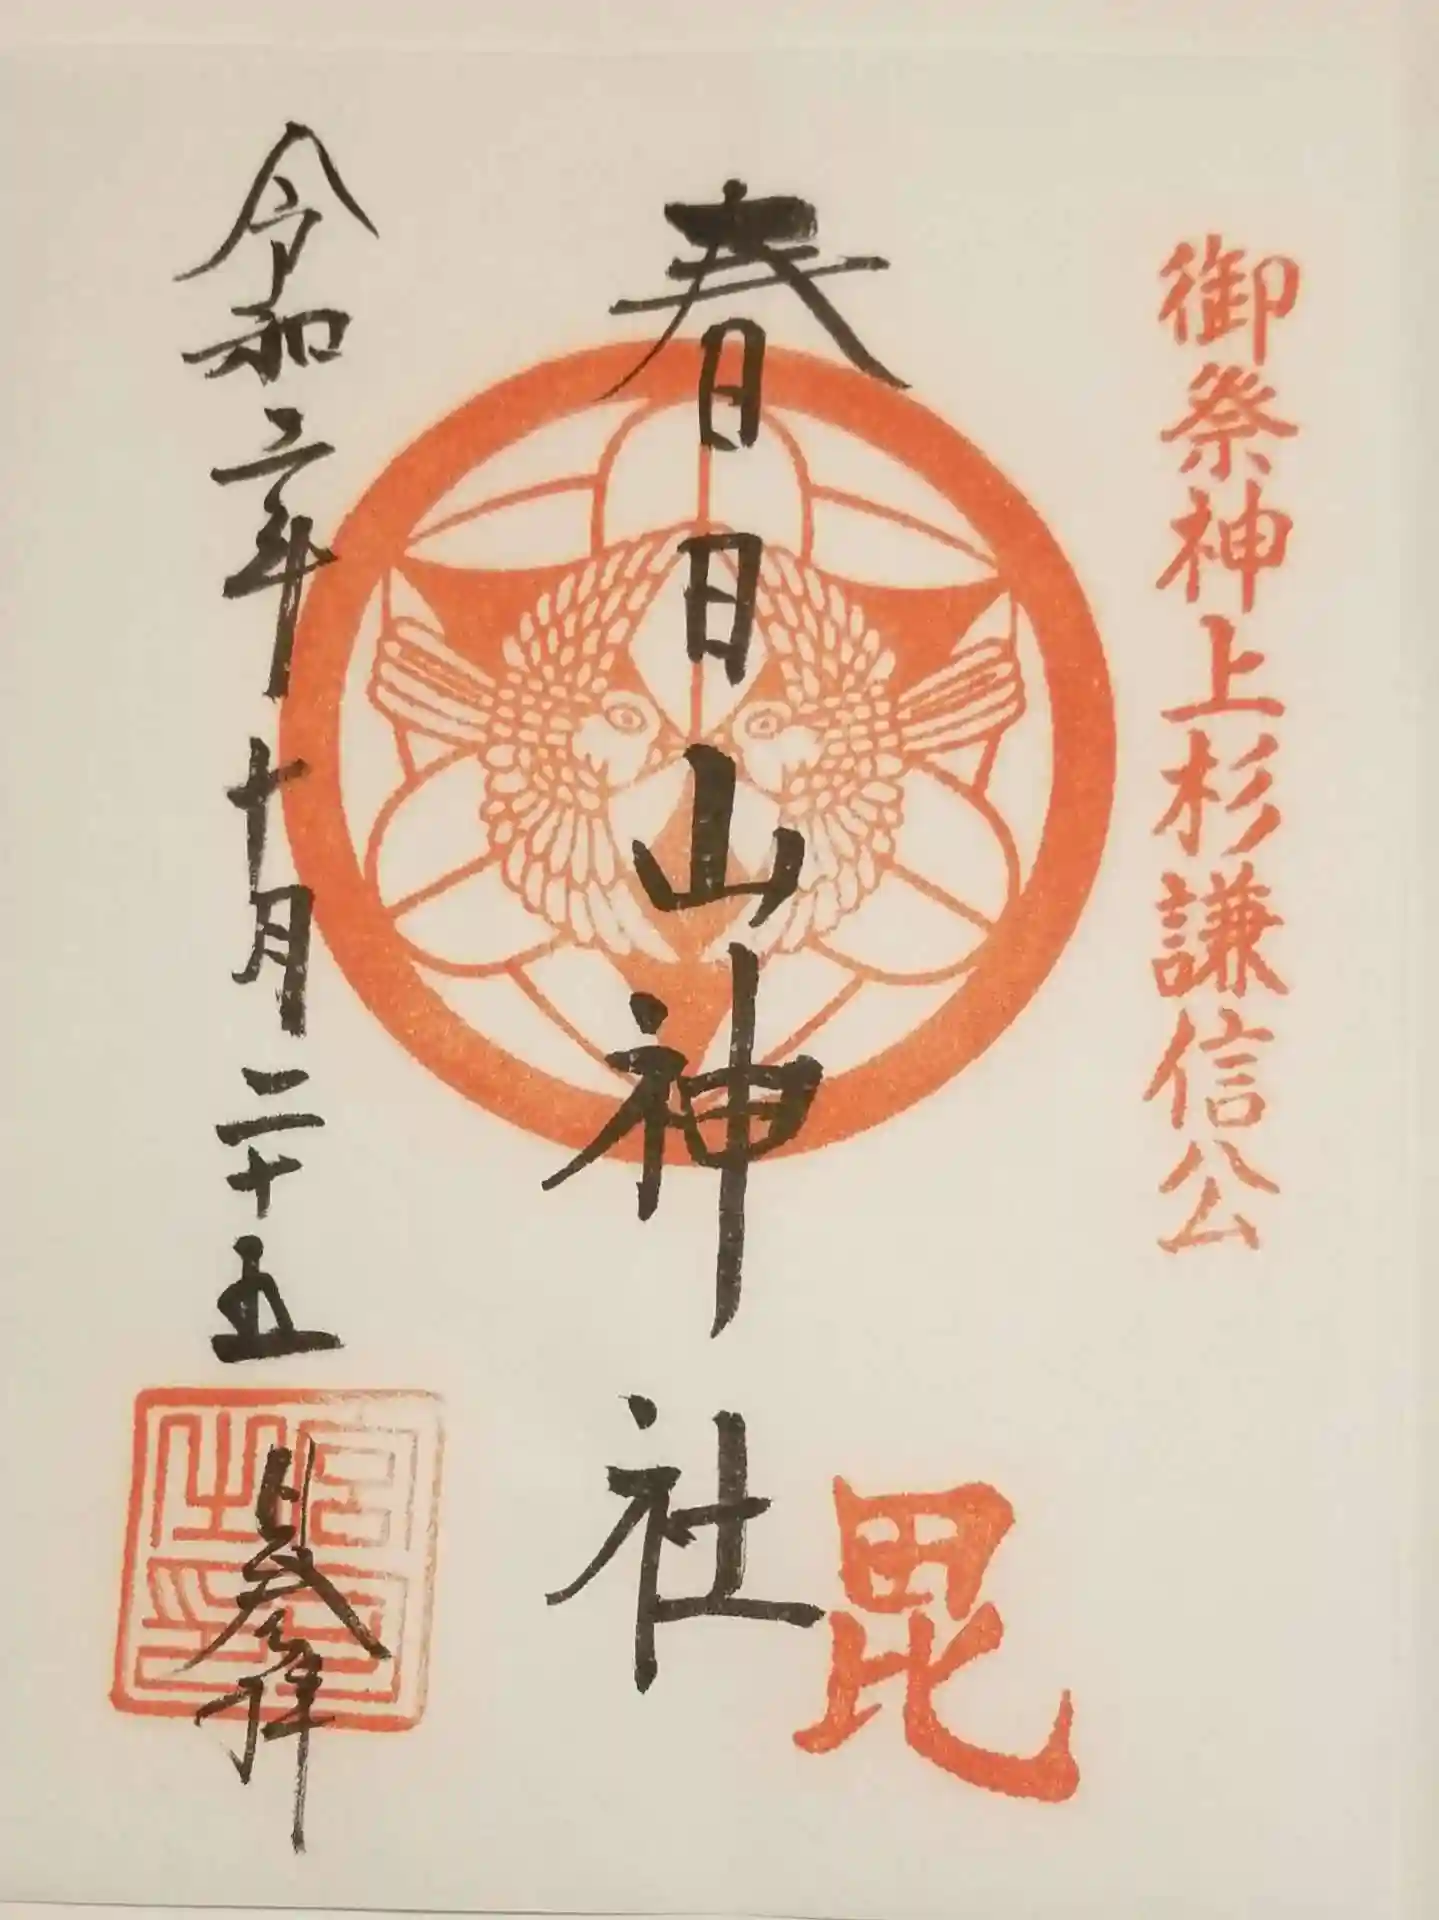 御祭神上杉謙信公
春日山神社
毘
令和二年十月二十五日参拝